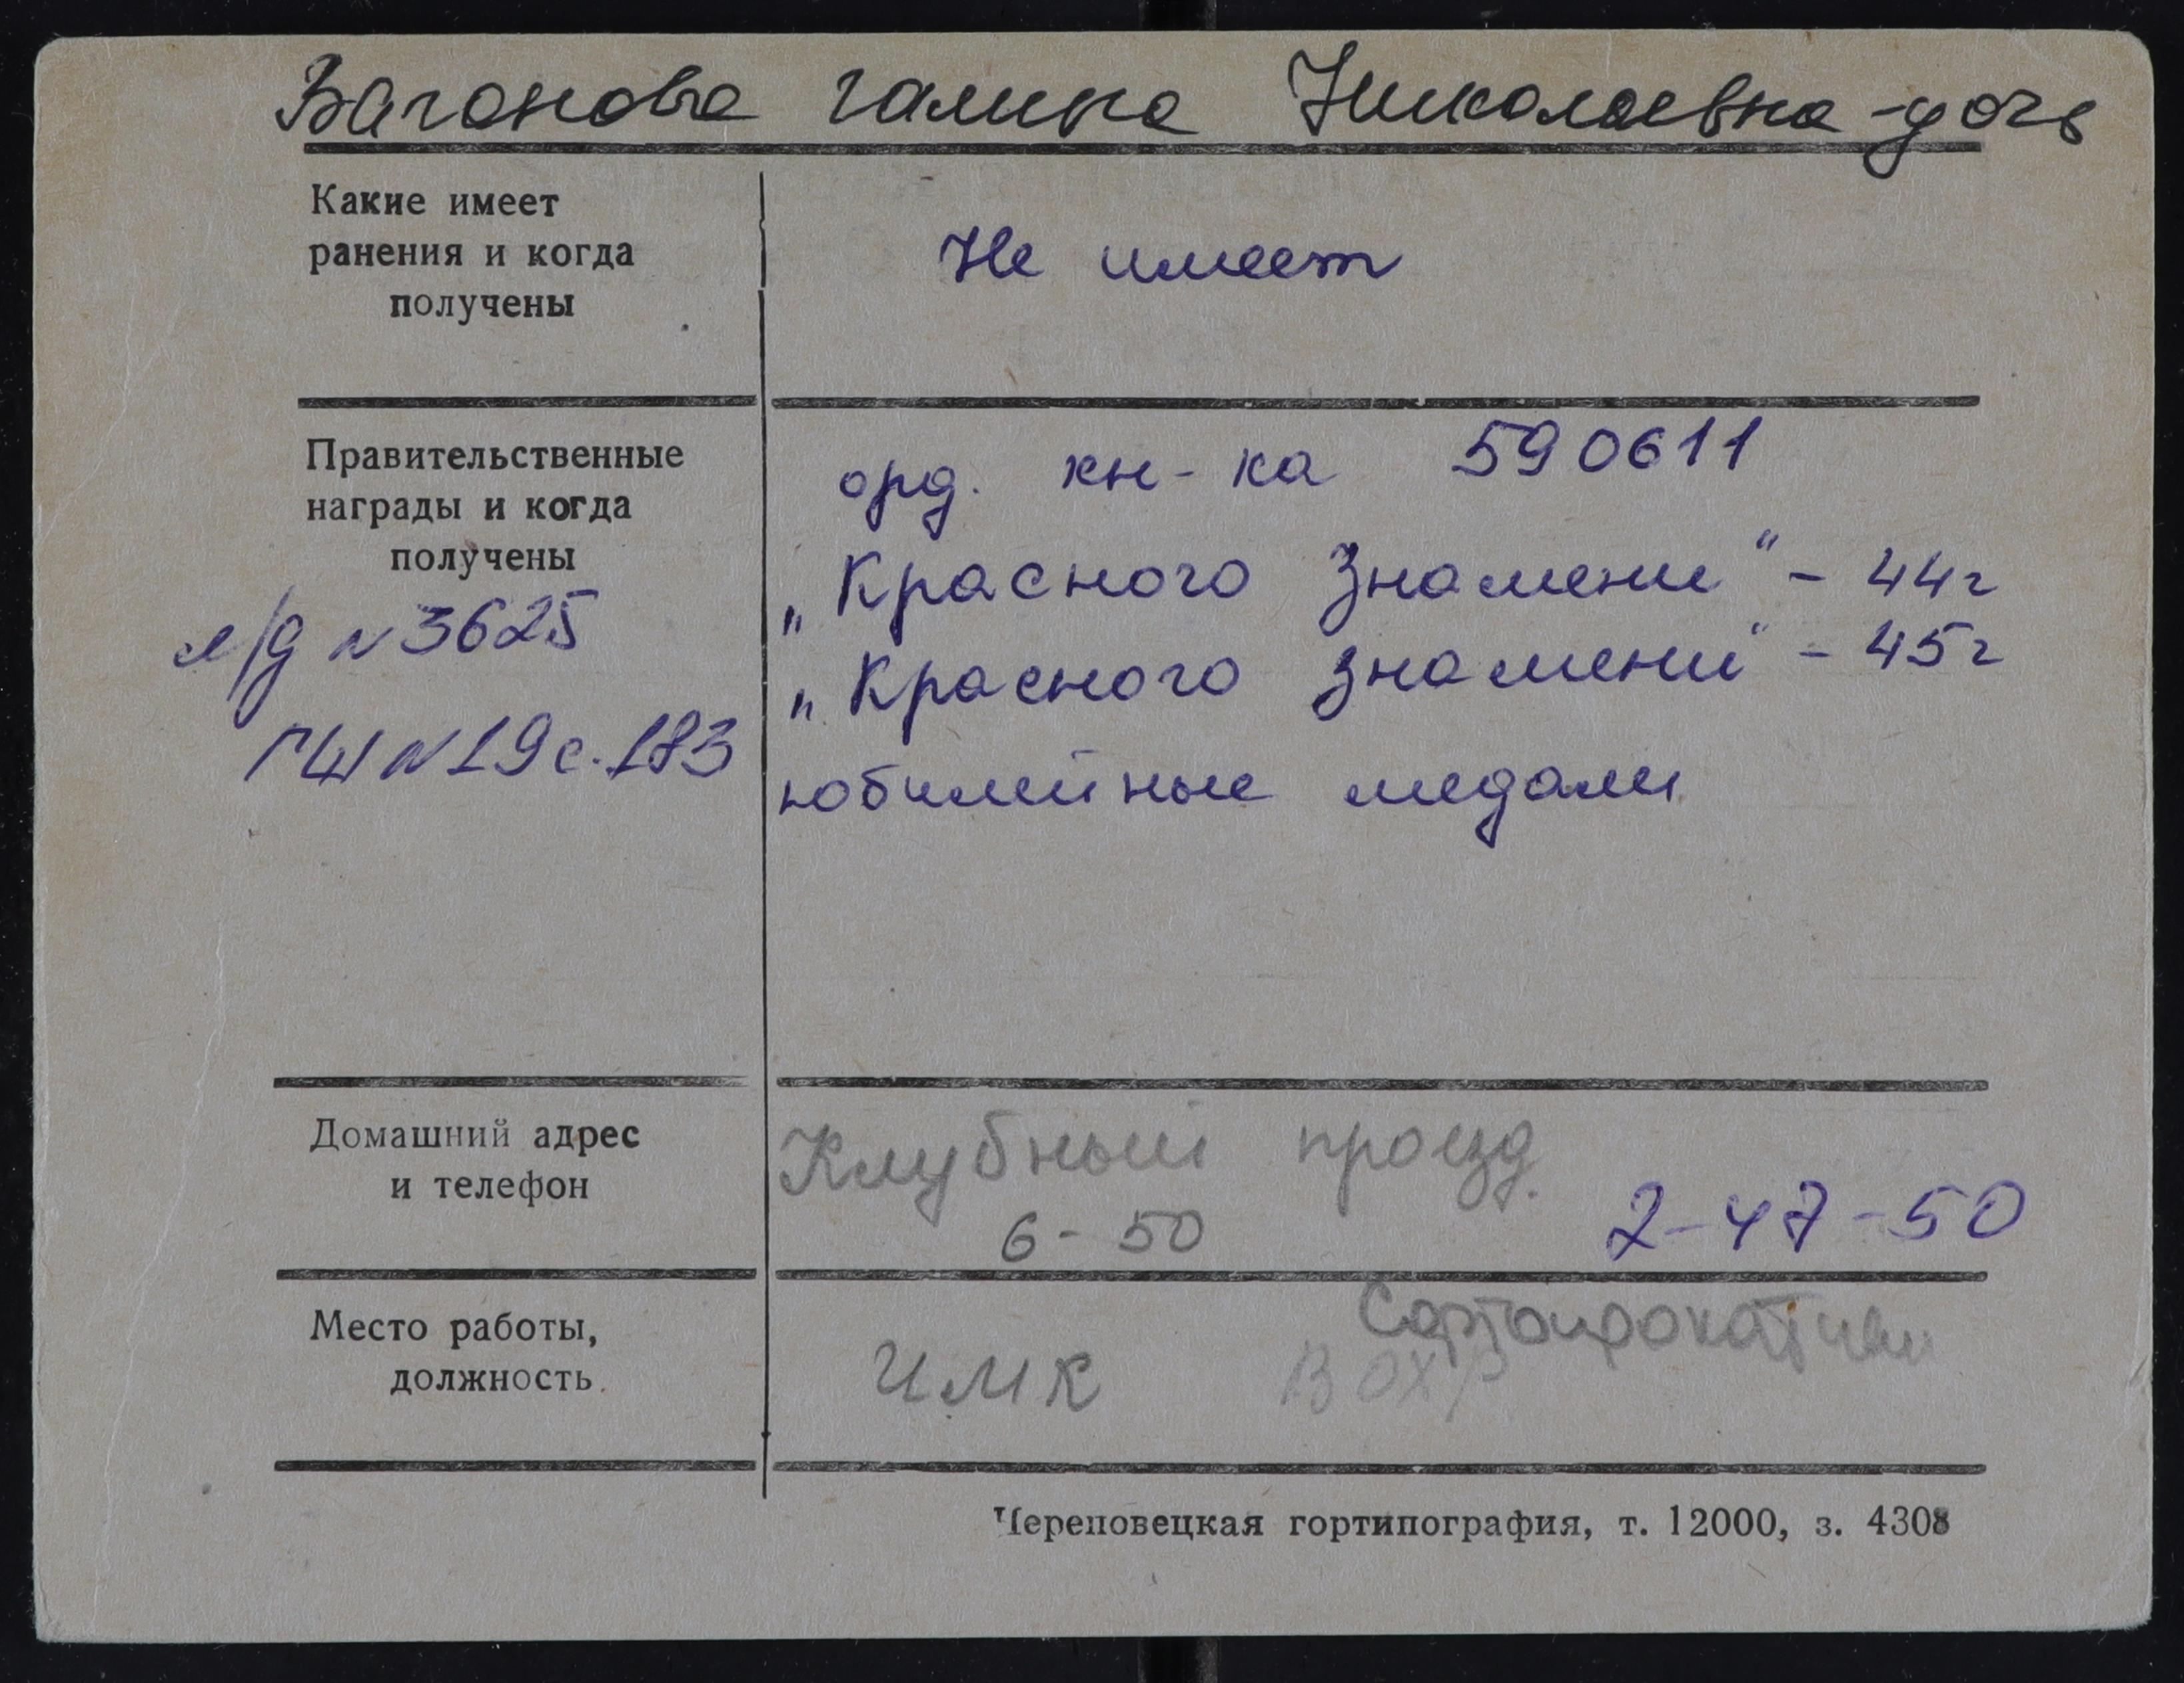 Вагонова Галина Николаевна - дочь
Какие имеет
ранения и когда
получены
Не имеет
Правительственные
награды и когда
получены
л/д N 3625
ГШ N 19 с. 183
орд. кн-ка 590611
„Красного Знамени" - 44г
„Красного Знамени" - 45г
юбилейные медали
Домашний адрес
и телефон
Клубный проезд
6-50
2-47-50
Место работы,
должность.
ЧМК
ВОХР
Череповецкая гортипография, т. 12000, з. 4308